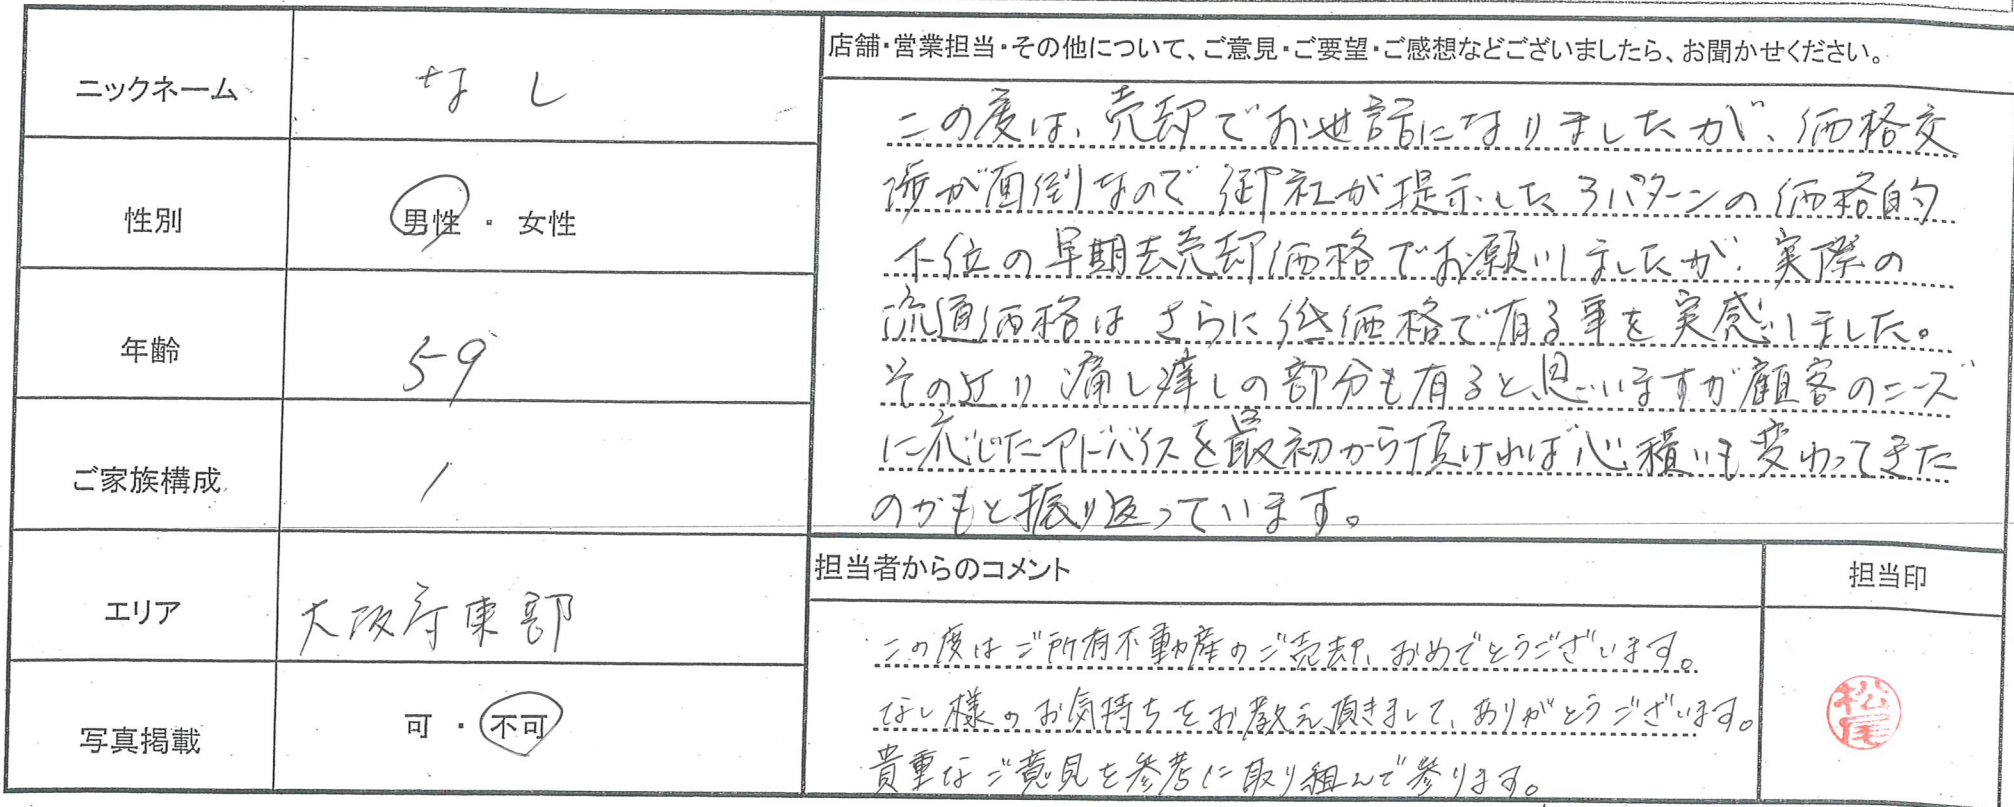 ニックネーム
なし
性別
男性・女性
年齢
59
ご家族構成
1
エリア
大阪府東部
写真掲載
可・不可
店舗・営業担当・その他について、ご意見・ご要望・ご感想などございましたら、お聞かせください。
この度は、売却でお世話になりましたが、価格交
渉が面倒なので御社が提示した3パターンの価格的
下位の早期売却価格でお願いしましたが、実際の
流通価格はさらに低価格で有る事を実感しました。
その辺り痛し痒しの部分も有ると思いますが顧客のニーズ
に応じたアドバイスを最初から頂ければ心積いも変わってきた
のかもと振り返っています。
担当者からのコメント
担当印
この度はご所有不動産のご売却、おめでとうございます。
なし様のお気持ちをお教え頂きまして、ありがとうございます。
貴重なご意見を参考に取り組んで参ります。
松尾